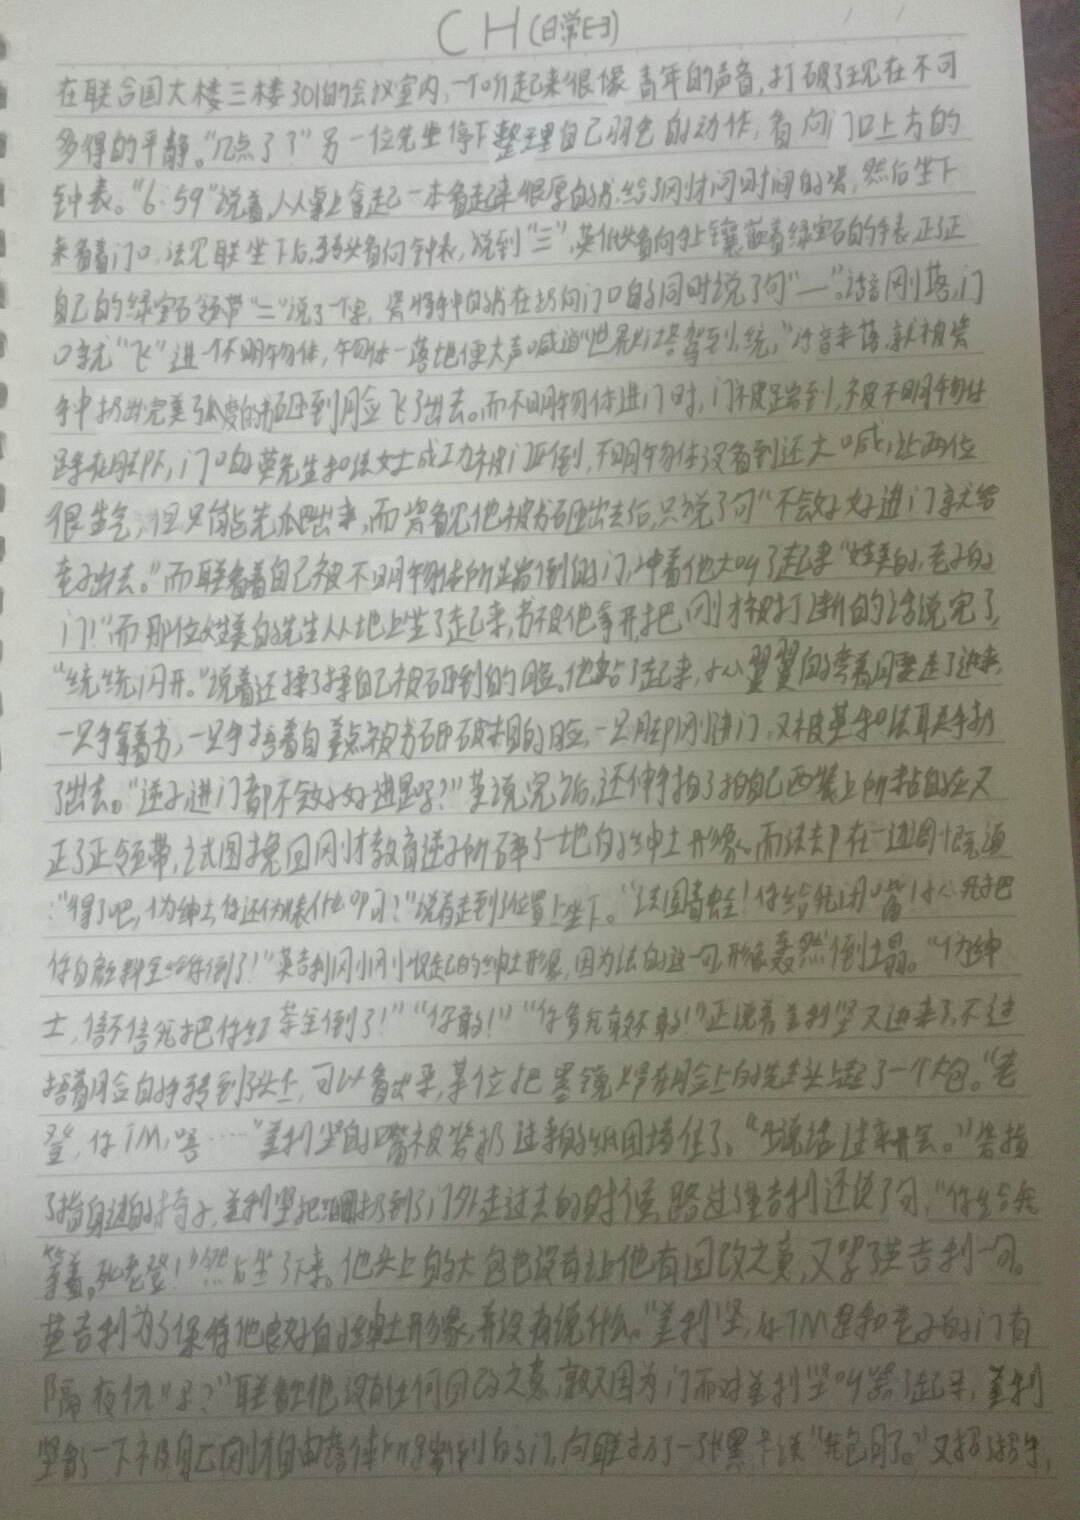 CH(日常E-3)
在联合国大楼三楼301的会议室内,一个听起来很像青年的声音,打破了现在不可
多得的平静。“几点了?”另一位先生停下整理自己羽色的动作,看向门口上方的
钟表。“6:59”说着,从桌上拿起一本看起来很厚的书,给了刚才问时间的瓷,然后坐下
来看着门口,法见联坐下后,转头看向钟表,说到“三”,英低头看向手上镶嵌着绿宝石的手表,正了正
自己的绿宝石领带“二”说了一个字,瓷将手中的书在扔向门口的同时说了句“一”。话音刚落,门
口就“飞”进一个不明物体,物体一落地便大声喊道“世界灯塔驾到,统,”话音未落,就被瓷
手中扔出完美弧度的书砸到脸飞了出去。而不明物体进门时,门被踹倒,被不明物体
踩在脚下,门口的英先生和法女士成功被门压倒,不明物体没看到还大喊,让两位
很生气,但只能先爬出来,而瓷看见他被书砸出去后,只说了句“不会好好进门就给
老子出去。”而联看着自己被不明物体所踹倒的门,冲着他大叫了起来“姓美的,老子的
门!”而那位姓美的先生从地上坐了起来,书被他拿开,把刚才被打断的话说完了,
“统统闪开。”说着还揉了揉自己被砸到的脸。他站了起来,小心翼翼的弯着腰走了进来,
一只手拿着书,一只手捂着自差点被书砸破相的脸,一只脚刚进门,又被英和法联手扔
了出去。“逆子,进门都不会好好进是吗?”英说完后,还伸手拍了拍自己西装上所粘的灰又
正了正领带,试图挽回刚才教育逆子所碎了一地的绅士形象。而法却在一边调侃道
:“得了吧,伪绅士,你还伪装什么呀?”说着走到位置上坐下。“法国青蛙!你给我闭嘴!小心我把
你的颜料全给你倒了!”英吉利刚刚恢起的绅士形象,因为法的这一句,形象轰然倒塌。“伪绅
士,信不信我把你红茶全倒了!”“你敢!”“你看我敢不敢!”正说着美利坚又进来了,不过
捂着脸的手转到了头上,可以看出来,某位把墨镜焊在脸上的先生头上起了一个大包。“老
登,你TM,唔……”美利坚的嘴被瓷扔过来的纸团堵住了。“少说话,过来开会。”瓷指
了指身边的椅子,美利坚把纸团扔到了门外,走过去的时候,路过英吉利还说了句,“你给我
等着,死老登!”然后坐了下来。他头上的大包也没有让他有回改之意,又骂了英吉利一句。
英吉利为了保持他良好的绅士形象,并没有说什么。“美利坚,你TM是和老子的门有
隔夜仇吗?”联看他没有任何回改之意,就又因为门而对美利坚叫骂了起来,美利
坚看了一下被自己刚才自由落体所踹倒的门,向联扔了一张黑卡说“我包月了。”又招了招手,